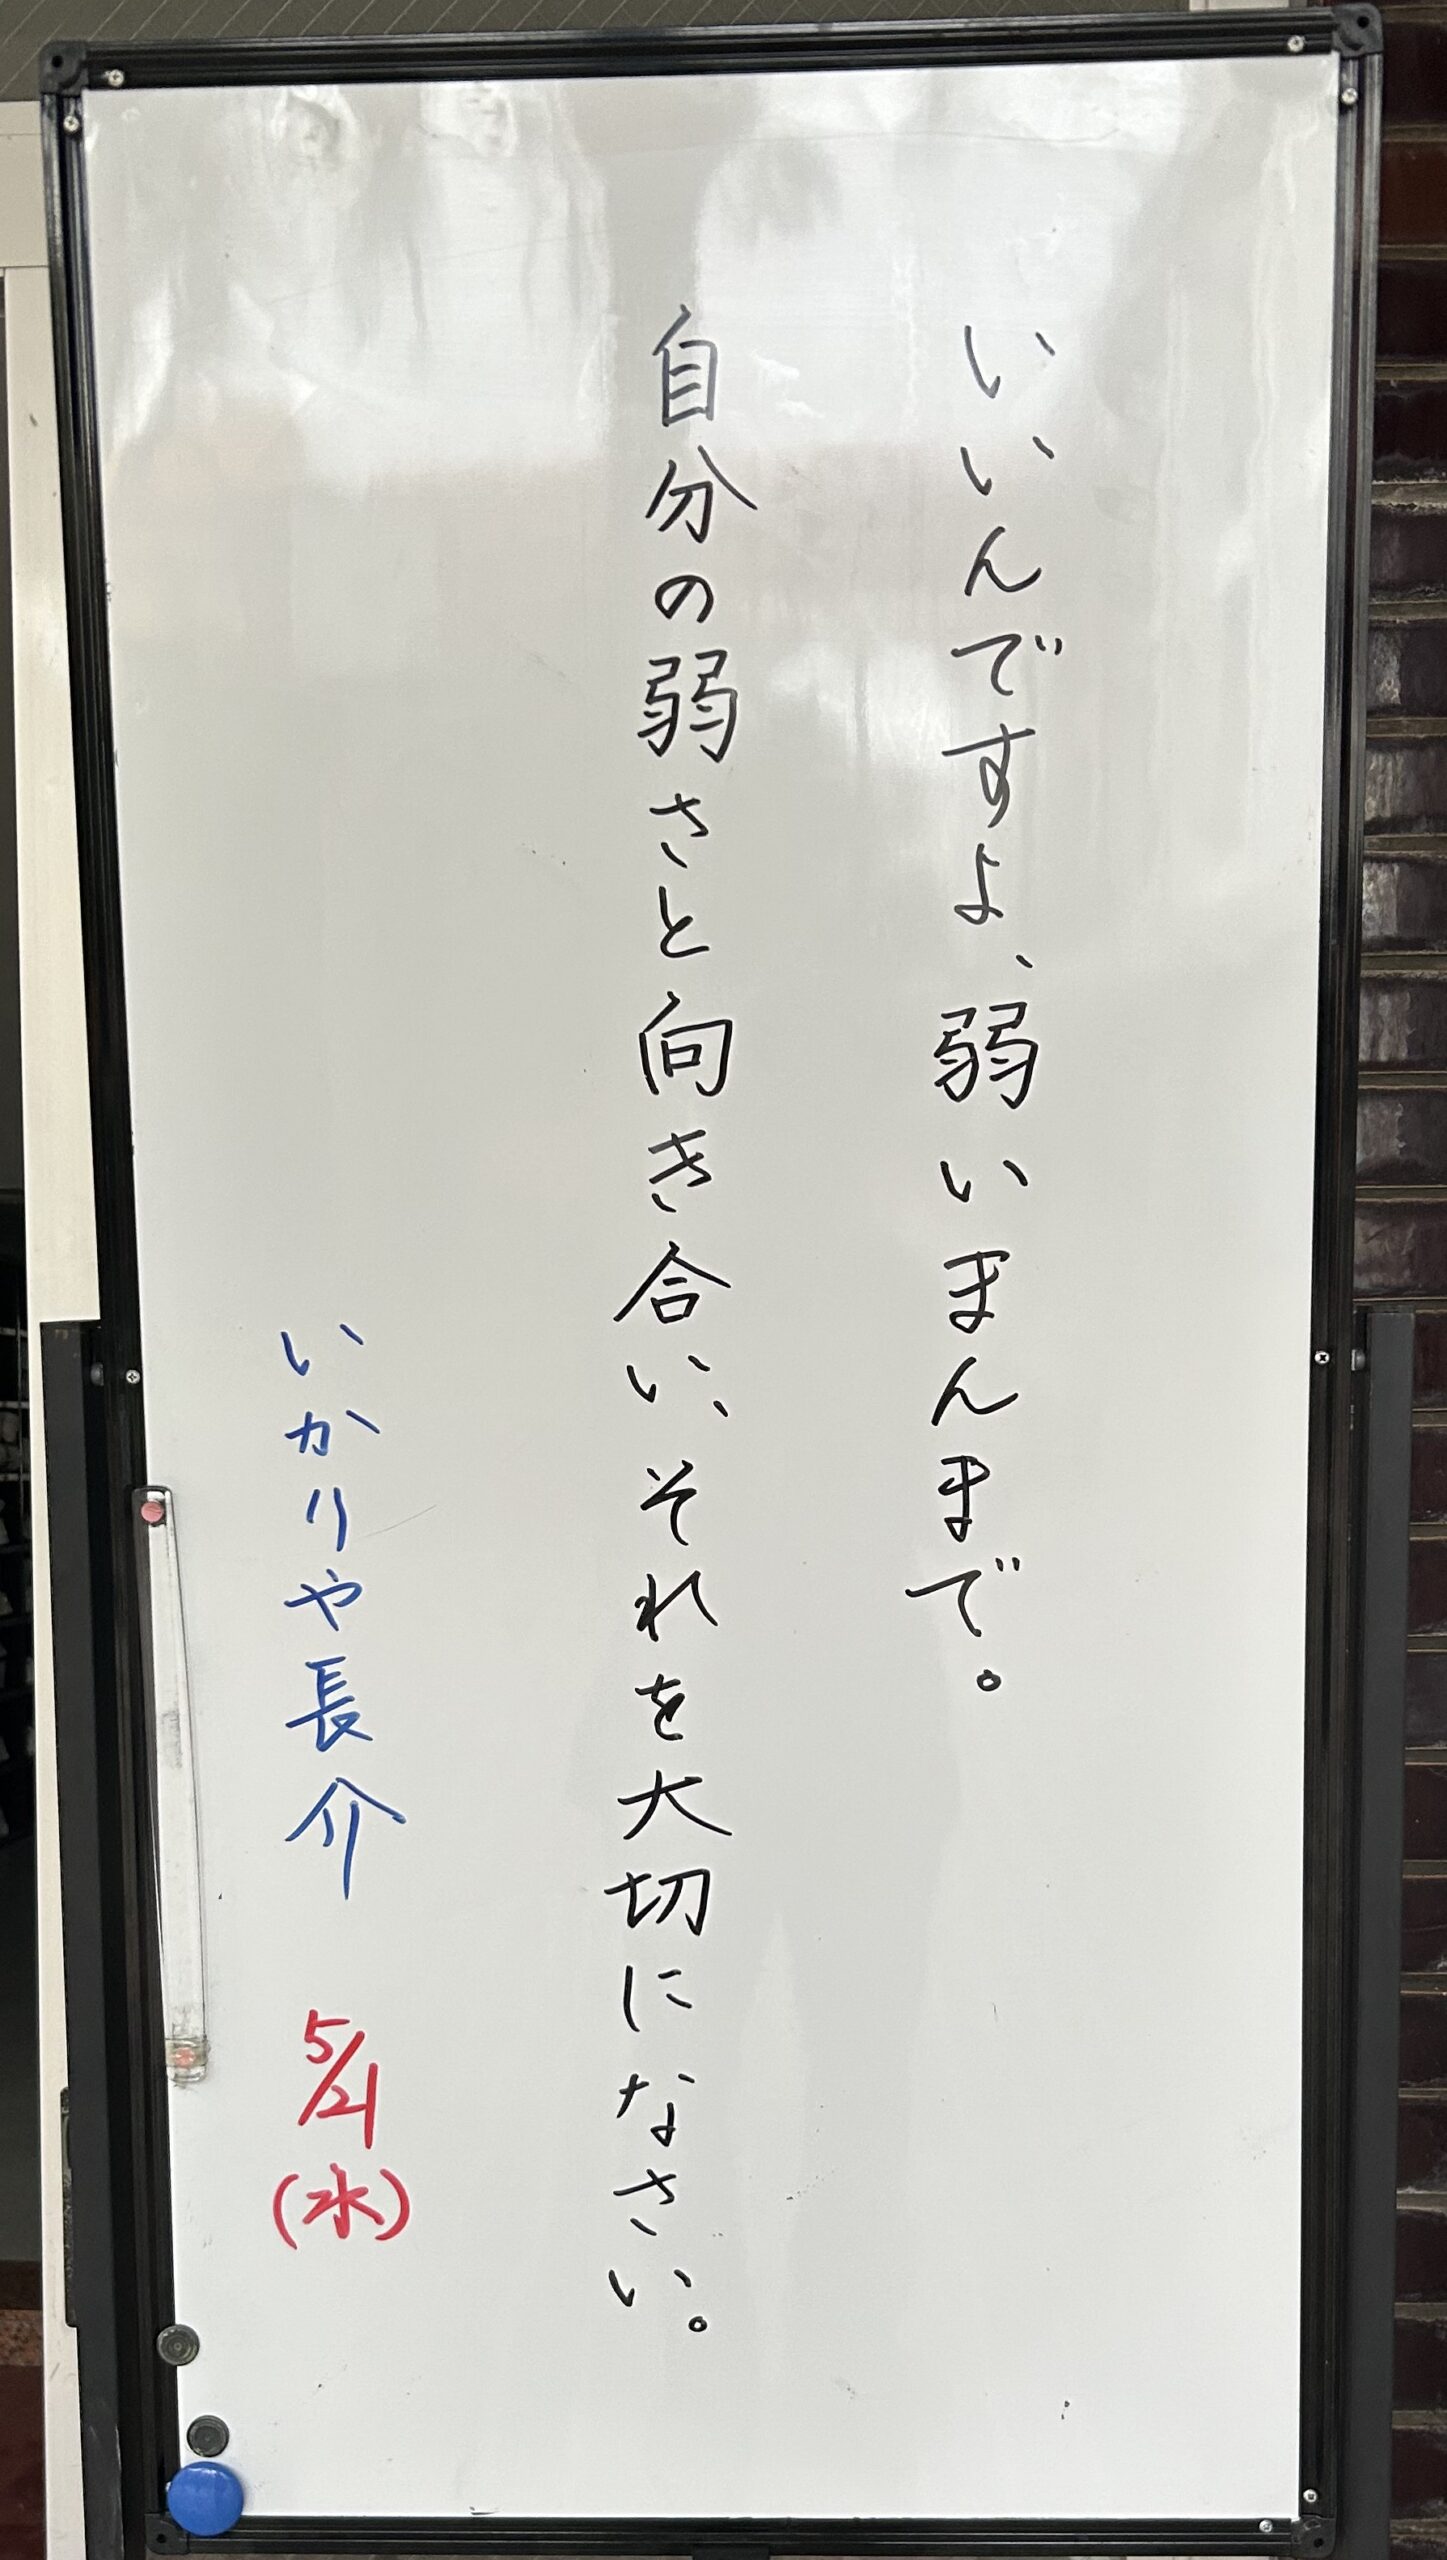 いいんですよ、弱いまんまで。
自分の弱さと向き合い、それを大切になさい。
いかりや長介 5/21(水)